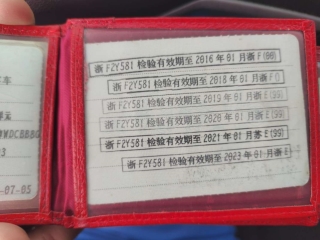 车
浙 F2Y581 检验有效期至 2016 年 01 月浙 F (99)
浙 F2Y581 检验有效期至 2018 年 01 月浙 F
浙 F2Y581 检验有效期至 2019 年 01 月浙 E (99)
浙 F2Y581 检验有效期至 2020 年 01 月浙 E (99)
浙 F2Y581 检验有效期至 2021 年 01 月苏 E (99)
浙 F2Y581 检验有效期至 2023 年 01 月浙 E
-07-05